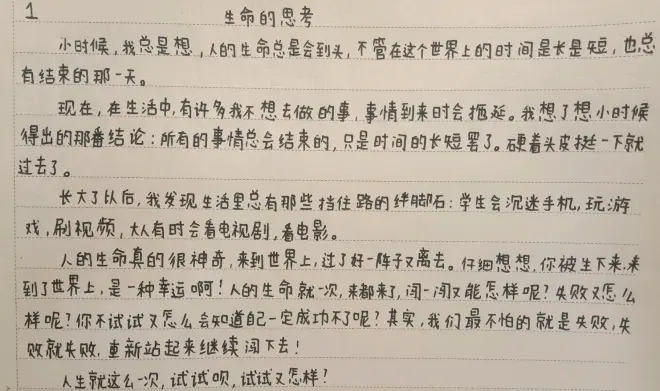 1
生命的思考
小时候，我总是想，人的生命总是会到头，不管在这个世界上的时间是长是短，也总
有结束的那一天。
现在，在生活中，有许多我不想去做的事，事情到来时会拖延。我想了想小时候
得出的那番结论：所有的事情总会结束的，只是时间的长短罢了。硬着头皮挺一下就
过去了。
长大了以后，我发现生活里总有那些挡住路的绊脚石：学生会沉迷手机，玩游
戏，刷视频，大人有时会看电视剧，看电影。
人的生命真的很神奇，来到世界上，过了好一阵子又离去。仔细想想，你被生下来，来
到了世界上，是一种幸运啊！人的生命就一次，来都来了，闯一闯又能怎样呢？失败又怎么
样呢？你不试试又怎么会知道自己一定成功不了呢？其实，我们最不怕的就是失败，失
败就失败，重新站起来继续闯下去！
人生就这么一次，试试呗，试试又怎样？